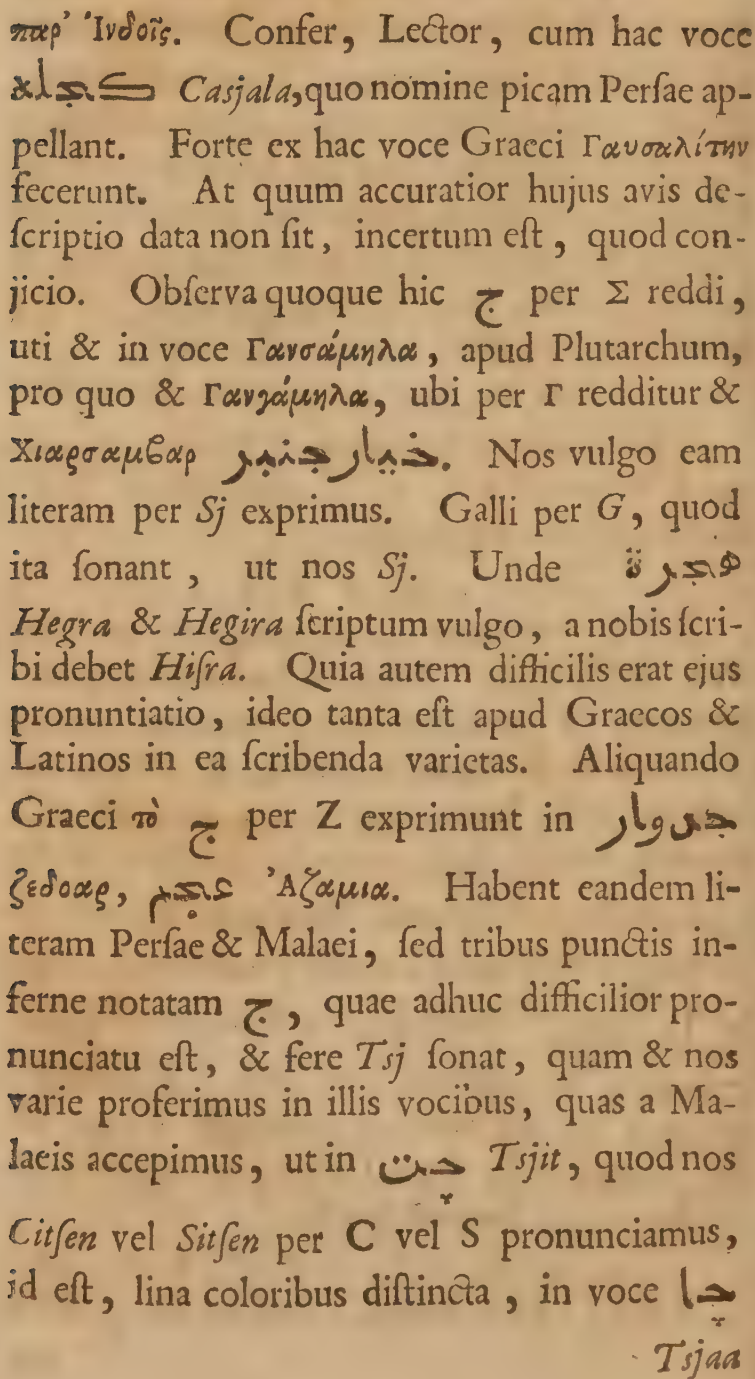 παρ' Ἰνδοῖς. Confer, Lector, cum hac voce
كجله Casjala, quo nomine picam Perſae ap-
pellant. Forte ex hac voce Graeci Γαυσαλίτην
fecerunt. At quum accuratior hujus avis de-
ſcriptio data non ſit, incertum eſt, quod con-
jicio. Obſerva quoque hic ج per Σ reddi,
uti & in voce Γαυσάμηλα, apud Plutarchum,
pro quo & Γαυγάμηλα, ubi per Γ redditur &
Χιαρσαμβαρ خيارجنبر. Nos vulgo eam
literam per Sj exprimus. Galli per G, quod
ita ſonant, ut nos Sj. Unde هجرة
Hegra & Hegira ſcriptum vulgo, a nobis ſcri-
bi debet Hiſra. Quia autem difficilis erat ejus
pronuntiatio, ideo tanta eſt apud Graecos &
Latinos in ea ſcribenda varietas. Aliquando
Graeci τὸ ج per Z exprimunt in جدوار
ζεδοαρ, عجم Ἀζαμια. Habent eandem li-
teram Perſae & Malaei, ſed tribus punctis in-
ferne notatam چ, quae adhuc difficilior pro-
nunciatu eſt, & fere Tsj ſonat, quam & nos
varie proferimus in illis vocibus, quas a Ma-
laeis accepimus, ut in چت Tsjit, quod nos
Citſen vel Sitſen per C vel S pronunciamus,
id eſt, lina coloribus diſtincta, in voce چا
Tsjaa